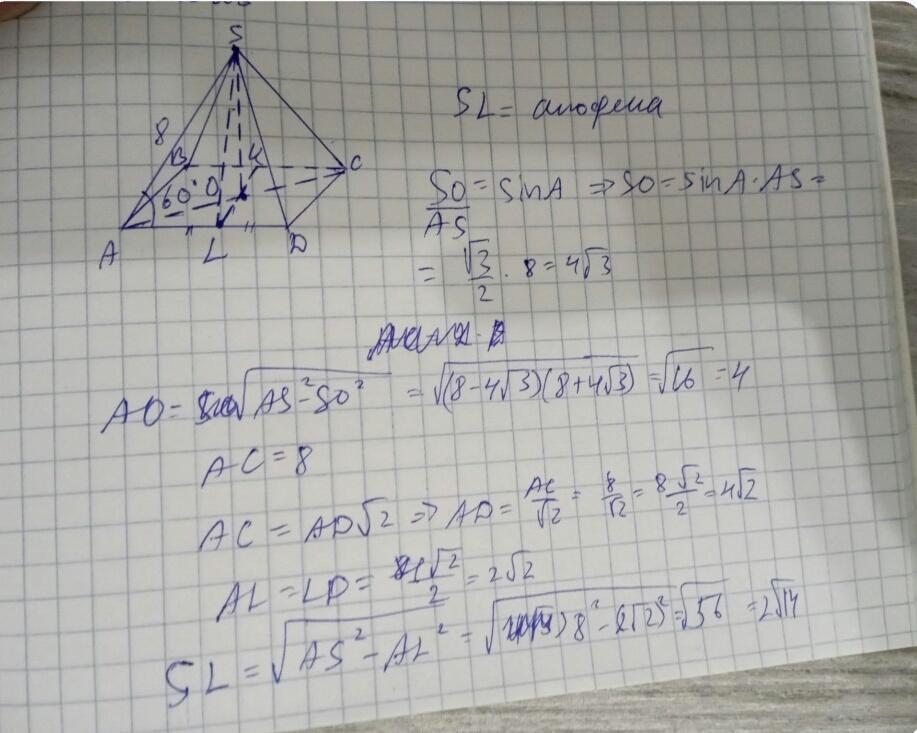 S
8
B
K
C
60°
O
A
L
D
SL = апофема
SO/AS = sin A ⇒ SO = sin A · AS =
= √3/2 · 8 = 4√3
AO = √(AS² - SO²) = √((8 - 4√3)(8 + 4√3)) = √16 = 4
AC = 8
AC = AD√2 ⇒ AD = AC/√2 = 8/√2 = 8√2/2 = 4√2
AL = LD = 4√2/2 = 2√2
SL = √(AS² - AL²) = √(8² - (2√2)²) = √56 = 2√14